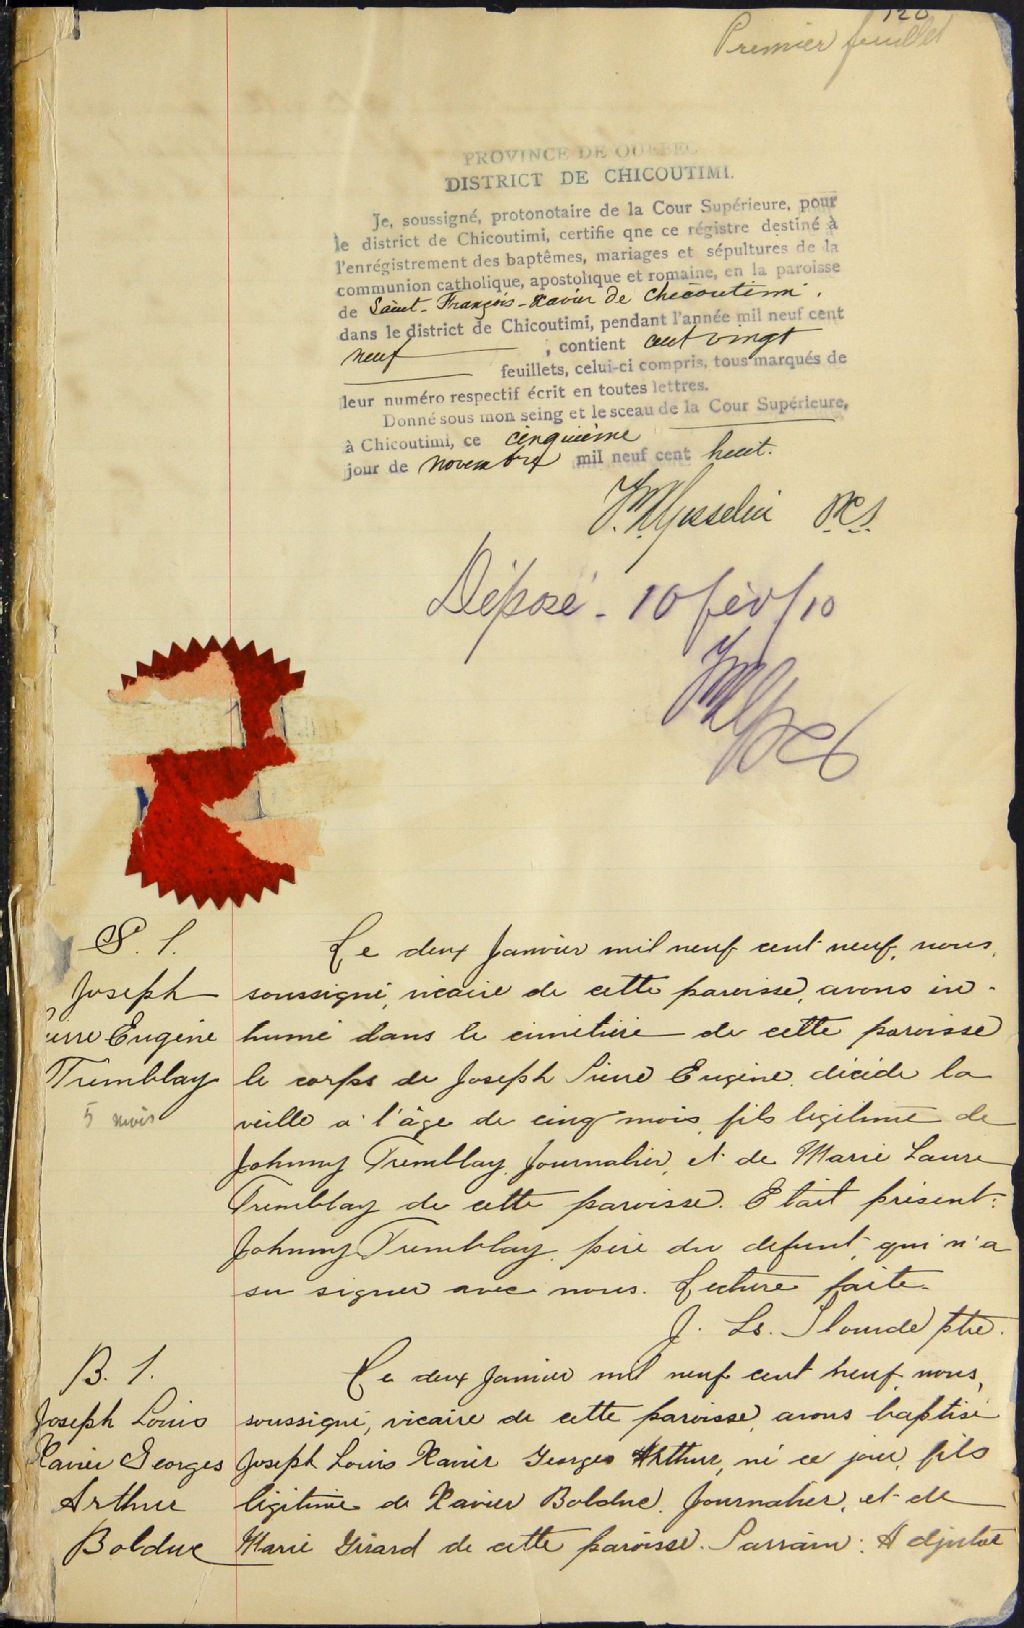 120
Premier feuillet
PROVINCE DE QUEBEC
DISTRICT DE CHICOUTIMI.
Je, soussigné, protonotaire de la Cour Supérieure, pour
le district de Chicoutimi, certifie qne ce régistre destiné à
l'enrégistrement des baptêmes, mariages et sépultures de la
communion catholique, apostolique et romaine, en la paroisse
de Saint-François-Xavier de Chicoutimi.
dans le district de Chicoutimi, pendant l'année mil neuf cent
neuf , contient cent vingt
feuillets, celui-ci compris, tous marqués de
leur numéro respectif écrit en toutes lettres.
Donné sous mon seing et le sceau de la Cour Supérieure,
à Chicoutimi, ce cinquième
jour de novembre mil neuf cent huit.
Gosselin P.C.S.
Déposé - 10 fév/10
S. 1.
Joseph
Pierre Eugène
Tremblay
5 mois
Le deux Janvier mil neuf cent neuf, nous,
soussigné, vicaire de cette paroisse, avons in-
humé dans le cimetière de cette paroisse
le corps de Joseph Pierre Eugène, décédé la
veille a l'âge de cinq mois, fils légitime de
Johnny Tremblay, Journalier, et de Marie Laure
Tremblay de cette paroisse. Etait présent:
Johnny Tremblay, père du defunt, qui n'a
su signer avec nous. Lecture faite.
J. Ls. ptre.
B. 1.
Joseph Louis
Xavier Georges
Arthur
Bolduc
Le deux Janvier mil neuf cent neuf, nous,
soussigné, vicaire de cette paroisse, avons baptisé
Joseph Louis Xavier Georges Arthur, né ce jour, fils
légitime de Xavier Bolduc, Journalier, et de
Marie Girard de cette paroisse. Parrain: Adjutor